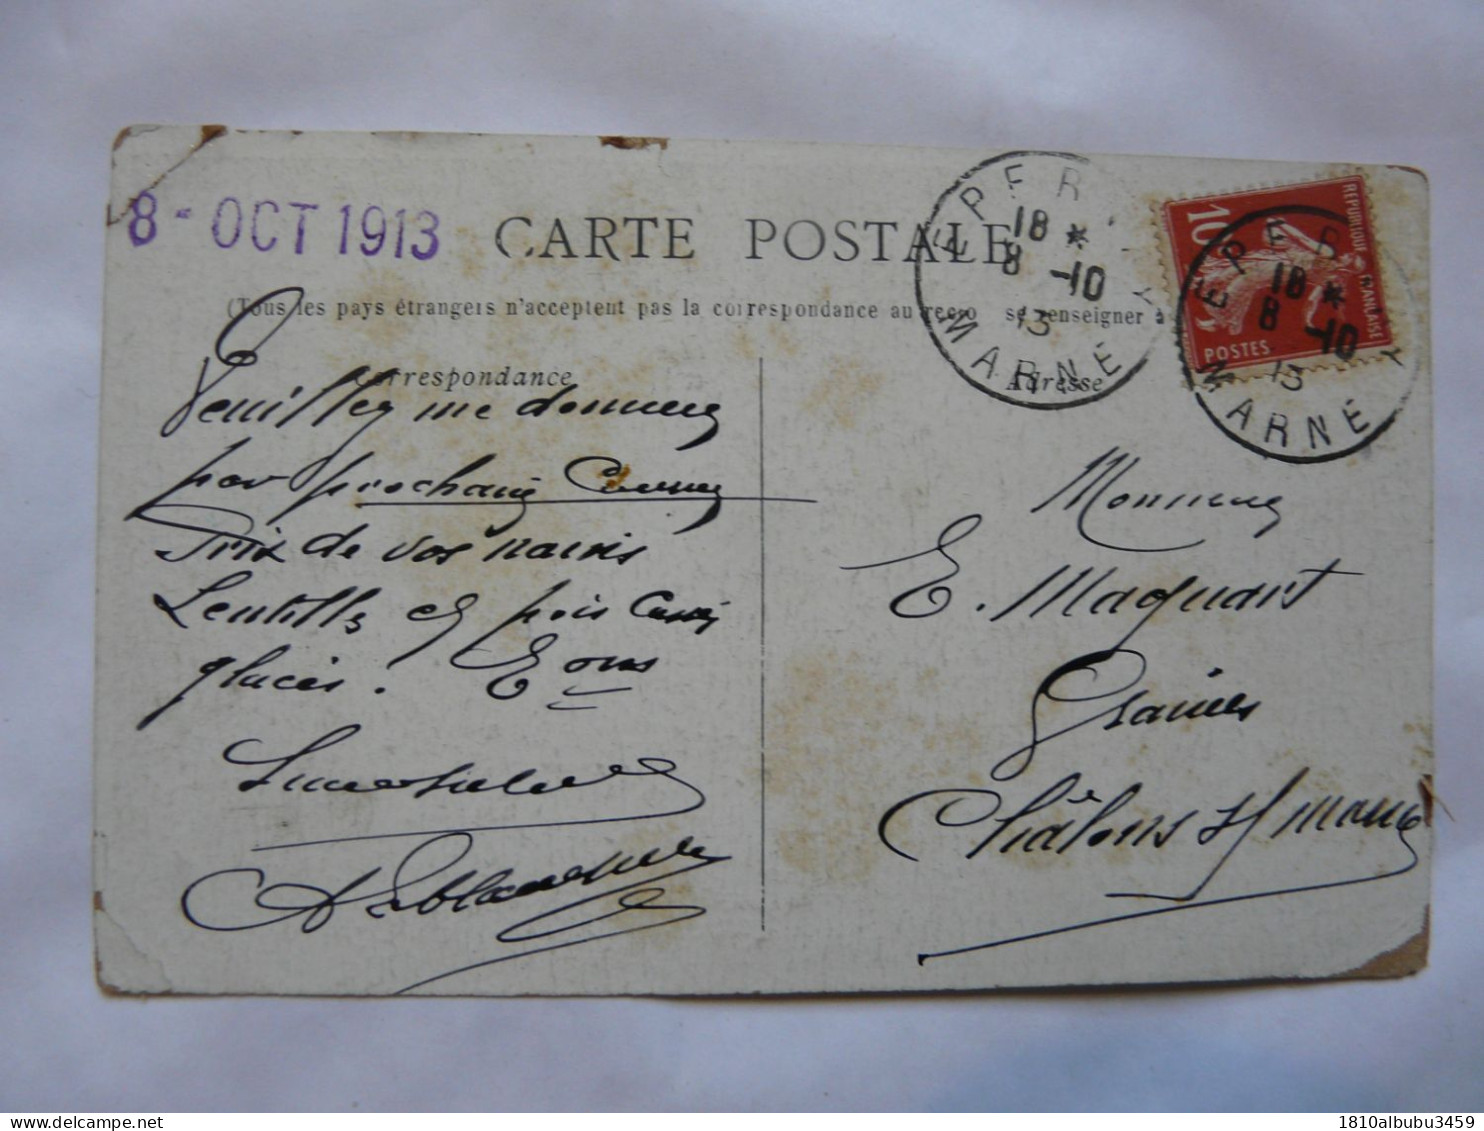 8 - OCT 1913
CARTE POSTALE
(Tous les pays étrangers n'acceptent pas la correspondance au recto se renseigner à
Correspondance
Adresse
EPERNAY
18 *
8 -10
13
MARNE
RÉPUBLIQUE FRANÇAISE
10
POSTES
EPERNAY
18 *
8 -10
13
MARNE
Veuillez me donner
par prochain Courrier
Prix de vos navis
Lentilles et pois Cassés
glacés.
Monsieur
E. Maquart
Grainier
Châlons s/ marne
1810albubu3459